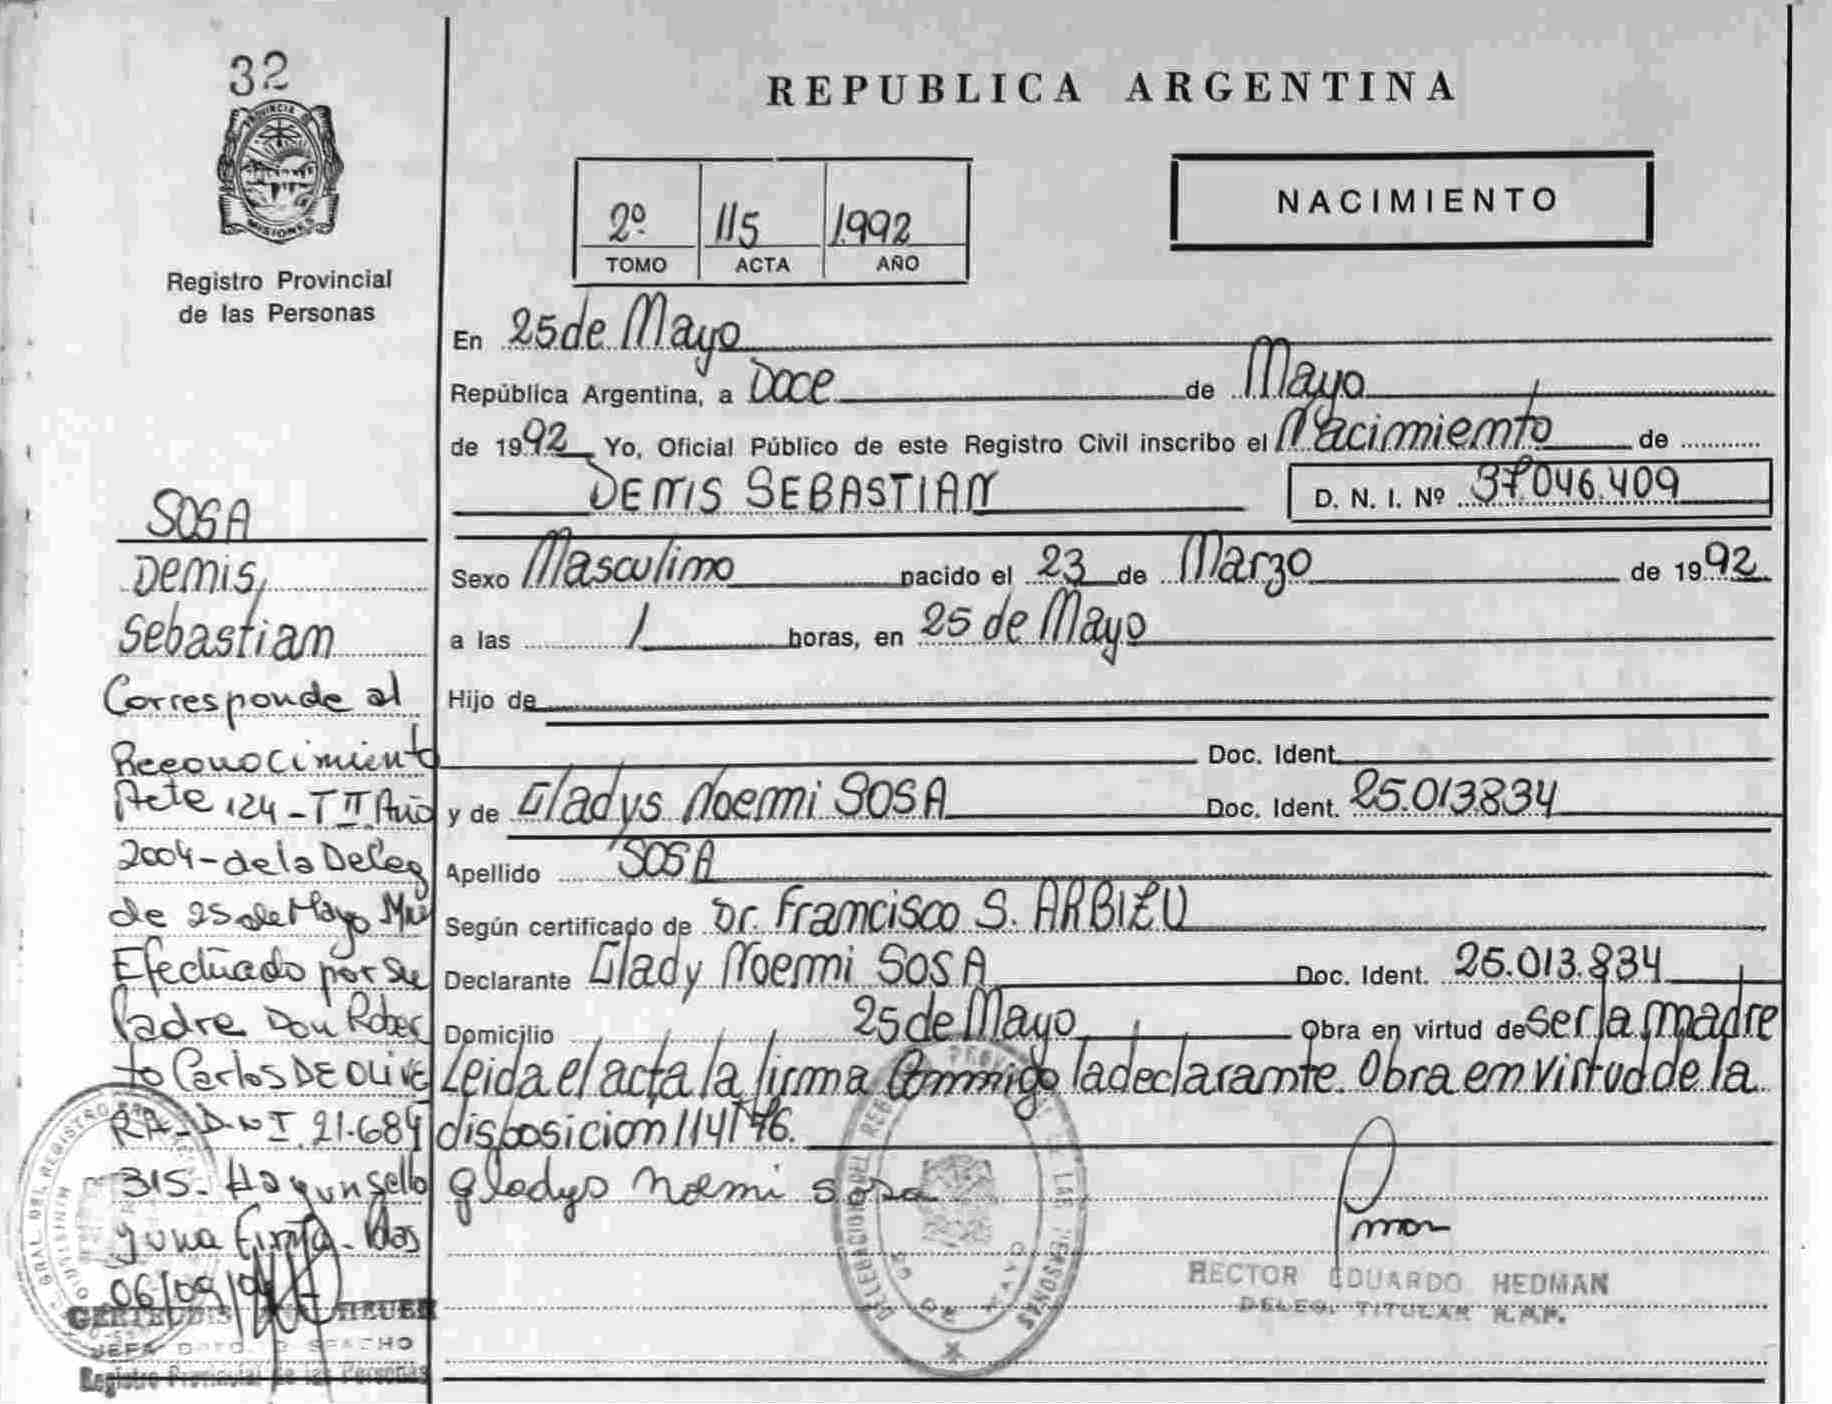 32
PROVINCIA DE
MISIONES
Registro Provincial
de las Personas
SOSA
Denis,
Sebastian
Corresponde al
Reconocimiento
Acta 124 - T II Año
2004 - de la Deleg
de 25 de Mayo Mnes
Efectuado por su
Padre Don Rober
to Carlos DE OLIVE
RA - D.N.I. 21.684
315. Hay un sello
y una firma - Pdas
06/09/04
JEFA DPTO. DESPACHO
Registro Provincial de las Personas
REPUBLICA ARGENTINA
NACIMIENTO
2º 115 1.992
TOMO ACTA AÑO
En 25 de Mayo
República Argentina, a Doce de Mayo
de 1992 Yo, Oficial Público de este Registro Civil inscribo el Nacimiento de
DENIS SEBASTIAN D. N. I. Nº 37.046.409
Sexo Masculino nacido el 23 de Marzo de 1992
a las 1 horas, en 25 de Mayo
Hijo de
Doc. Ident.
y de Gladys Noemi SOSA Doc. Ident. 25.013.834
Apellido SOSA
Según certificado de Dr. Francisco S. ARBIZU
Declarante Glady Noemi SOSA Doc. Ident. 25.013.834
Domicilio 25 de Mayo Obra en virtud de ser la madre
Leida el acta la firma Conmigo la declarante. Obra en virtud de la
disposicion 114/76.
Gladys Noemi Sosa
DELEGACION DEL REGISTRO PROVINCIAL DE LAS PERSONAS
25 DE MAYO
HECTOR EDUARDO HEDMAN
DELEG. TITULAR R.P.P.